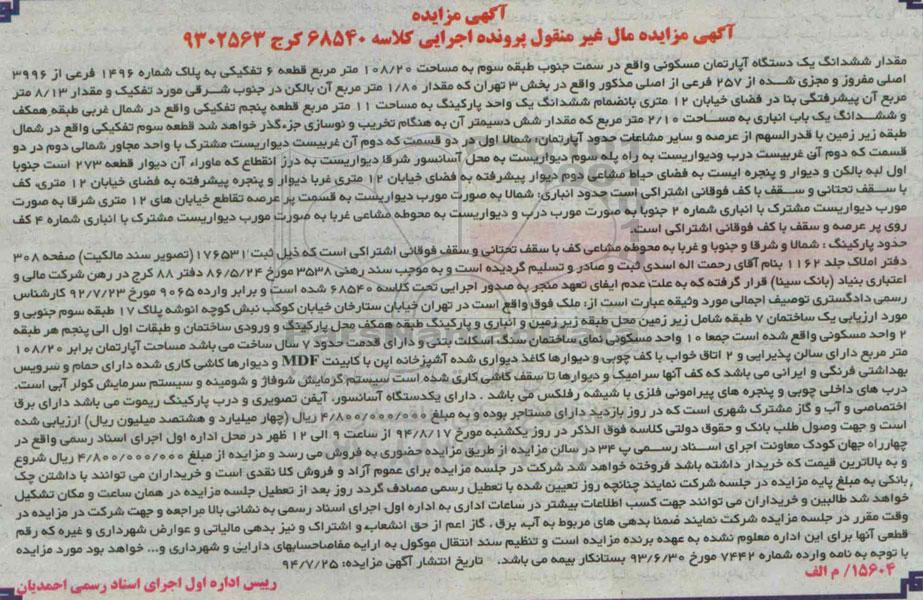 آگهی مزایده
آگهی مزایده مال غیر منقول پرونده اجرایی کلاسه ۶۸۵۴۰ کرج ۹۳۰۲۵۶۳
مقدار ششدانگ یک دستگاه آپارتمان مسکونی واقع در سمت جنوب طبقه سوم به مساحت ۱۰۸/۲۰ متر مربع قطعه ۶ تفکیکی به پلاک شماره ۱۴۹۶ فرعی از ۳۹۹۶
اصلی مفروز و مجزی شده از ۲۵۷ فرعی از اصلی مذکور واقع در بخش ۳ تهران که مقدار ۱/۸۰ متر مربع آن بالکن در جنوب شرقی مورد تفکیک و مقدار ۸/۱۳ متر
مربع آن پیشرفتگی بنا در فضای خیابان ۱۲ متری بانضمام ششدانگ یک واحد پارکینگ به مساحت ۱۱ متر مربع قطعه پنجم تفکیکی واقع در شمال غربی طبقه همکف
و ششدانگ یک باب انباری به مساحت ۲/۱۰ متر مربع که مقدار شش دسیمتر آن به هنگام تخریب و نوسازی جزء گذر خواهد شد قطعه سوم تفکیکی واقع در شمال
طبقه زیر زمین با قدرالسهم از عرصه و سایر مشاعات حدود آپارتمان: شمالا اول در دو قسمت که دوم آن غربیست دیواریست مشترک با واحد مجاور شمالی دوم در دو
قسمت که دوم آن غربیست درب ودیواریست به راه پله سوم دیواریست به محل آسانسور شرقا دیواریست به درز انقطاع که ماوراء آن دیوار قطعه ۲۷۳ است جنوبا
اول لبه بالکن و دیوار و پنجره ایست به فضای حیاط مشاعی دوم دیوار پیشرفته به فضای خیابان ۱۲ متری غربا دیوار و پنجره پیشرفته به فضای خیابان ۱۲ متری، کف
با سقف تحتانی و سقف با کف فوقانی اشتراکی است حدود انباری: شمالا به صورت مورب دیواریست به قسمت پر عرصه تقاطع خیابان های ۱۲ متری شرقا به صورت
مورب دیواریست مشترک با انباری شماره ۲ جنوبا به صورت مورب درب و دیواریست به محوطه مشاعی غربا به صورت مورب دیواریست مشترک با انباری شماره ۴ کف
روی پر عرصه و سقف با کف فوقانی اشتراکی است.
حدود پارکینگ : شمالا و شرقا و جنوبا و غربا به محوطه مشاعی کف با سقف تحتانی و سقف فوقانی اشتراکی است که ذیل ثبت ۱۷۶۵۳۱ (تصویر سند مالکیت) صفحه ۳۰۸
دفتر املاک جلد ۱۱۶۲ بنام آقای رحمت اله اسدی ثبت و صادر و تسلیم گردیده است و به موجب سند رهنی ۳۵۳۸ مورخ ۸۶/۵/۲۴ دفتر ۸۸ کرج در رهن شرکت مالی و
اعتباری بنیاد (بانک سینا) قرار گرفته که به علت عدم ایفای تعهد منجر به صدور اجرایی تحت کلاسه ۶۸۵۴۰ شده است و برابر وارده ۹۰۶۵ مورخ ۹۲/۷/۲۳ کارشناس
رسمی دادگستری توصیف اجمالی مورد وثیقه عبارت است از: ملک فوق واقع است در تهران خیابان ستارخان خیابان کوکب نبش کوچه انوشه پلاک ۱۷ طبقه سوم جنوبی و
مورد ارزیابی یک ساختمان ۷ طبقه شامل زیر زمین محل طبقه زیر زمین و انباری و پارکینگ طبقه همکف محل پارکینگ و ورودی ساختمان و طبقات اول الی پنجم هر طبقه
۲ واحد مسکونی واقع شده است جمعا ۱۰ واحد مسکونی نمای ساختمان سنگ اسکلت بتنی و دارای قدمت حدود ۷ سال ساخت می باشد مساحت آپارتمان برابر ۱۰۸/۲۰
متر مربع دارای سالن پذیرایی و ۲ اتاق خواب با کف چوبی و دیوارها کاغذ دیواری شده آشپزخانه اپن با کابینت MDF و دیوارها کاشی کاری شده دارای حمام و سرویس
بهداشتی فرنگی و ایرانی می باشد که کف آنها سرامیک و دیوارها تا سقف کاشی کاری شده است سیستم گرمایش شوفاژ و شومینه و سیستم سرمایش کولر آبی است.
درب های داخلی چوبی و پنجره های پیرامونی فلزی با شیشه رفلکس می باشد . دارای یکدستگاه آسانسور، آیفن تصویری و درب پارکینگ ریموت می باشد دارای برق
اختصاصی و آب و گاز مشترک شهری است که در روز بازدید دارای مستاجر بوده و به مبلغ ۴/۸۰۰/۰۰۰/۰۰۰ ریال (چهار میلیارد و هشتصد میلیون ریال) ارزیابی شده
است و جهت وصول طلب بانک و حقوق دولتی کلاسه فوق الذکر در روز یکشنبه مورخ ۹۴/۸/۱۷ از ساعت ۹ الی ۱۲ ظهر در محل اداره اول اجرای اسناد رسمی واقع در
چهارراه جهان کودک معاونت اجرای اسناد رسمی پ ۳۴ در سالن مزایده از طریق مزایده حضوری به فروش می رسد و مزایده از مبلغ ۴/۸۰۰/۰۰۰/۰۰۰ ریال شروع
و به بالاترین قیمت که خریدار داشته باشد فروخته خواهد شد شرکت در جلسه مزایده برای عموم آزاد و فروش کلا نقدی است و خریداران می توانند با داشتن چک
بانکی به مبلغ پایه مزایده در جلسه شرکت نمایند چنانچه روز تعیین شده با تعطیل رسمی مصادف گردد روز بعد از تعطیل جلسه مزایده در همان ساعت و مکان تشکیل
خواهد شد طالبین و خریداران می توانند جهت کسب اطلاعات بیشتر در ساعات اداری به اداره اول اجرای اسناد رسمی به نشانی بالا مراجعه و جهت شرکت در مزایده در
وقت مقرر در جلسه مزایده شرکت نمایند ضمنا بدهی های مربوط به آب، برق ، گاز اعم از حق انشعاب و اشتراک و نیز بدهی مالیاتی و عوارض شهرداری و غیره که رقم
قطعی آنها برای این اداره معلوم نشده به عهده برنده مزایده است و تنظیم سند انتقال موکول به ارایه مفاصاحسابهای دارایی و شهرداری و... خواهد بود مورد مزایده
با توجه به نامه وارده شماره ۷۴۴۲ مورخ ۹۳/۶/۳۰ بستانکار بیمه می باشد. تاریخ انتشار آگهی مزایده: ۹۴/۷/۲۵
۱۵۶۰۴/ م الف
رییس اداره اول اجرای اسناد رسمی احمدیان